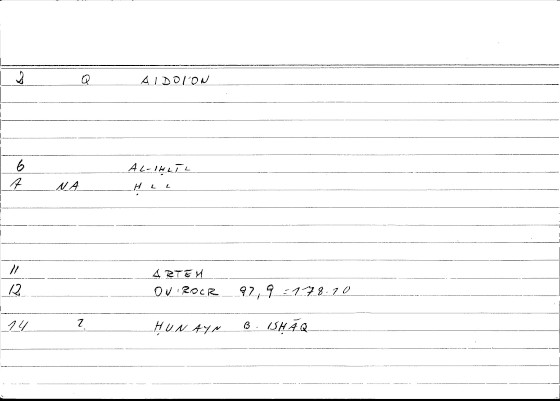 2 Q AIDOION
6 AL-IḤLĪL
7 NA ḤLL
11 ARTEM
12 OV·ROCR 97,9 = 178.10
14 2 ḤUNAYN B. ISḤĀQ